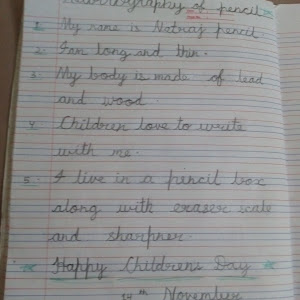 Autobiography of pencil
1. My name is Natraj pencil
2. I am long and thin.
3. My body is made of lead
and wood.
4. Children love to write
with me.
5. I live in a pincil box
along with eraser scale
and sharpner.
Happy Childrens Day
14th November